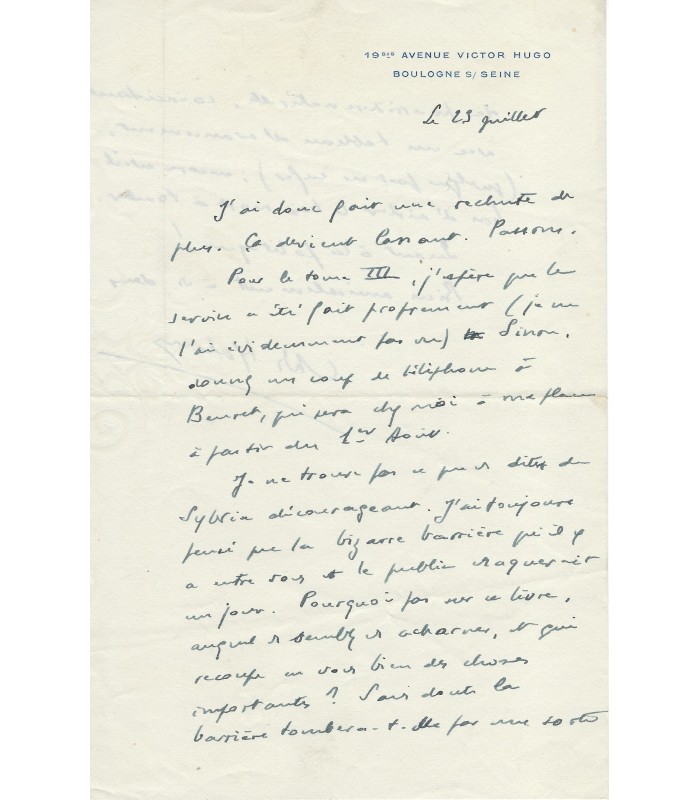 19bis AVENUE VICTOR HUGO
BOULOGNE S/ SEINE
Le 23 juillet
J'ai donc fait une rechute de
plus. Ça devient lassant. Passons.
Pour le tome III, j'espère que le
service a été fait proprement (je ne
l'ai évidemment pas vu) Sinon,
donnez un coup de téléphone à
Beuret, qui sera chez moi à ma place
à partir du 1er Août.
Je ne trouve pas ce que v dites de
Sylvia décourageant. J'ai toujours
pensé que la bizarre barrière qu'il y
a entre vous et le public craquerait
un jour. Pourquoi pas sur ce livre,
auquel v semblez v acharner, et qui
recoupe en vous bien des choses
importantes ? Sans doute la
barrière tombera-t-elle par une sorte